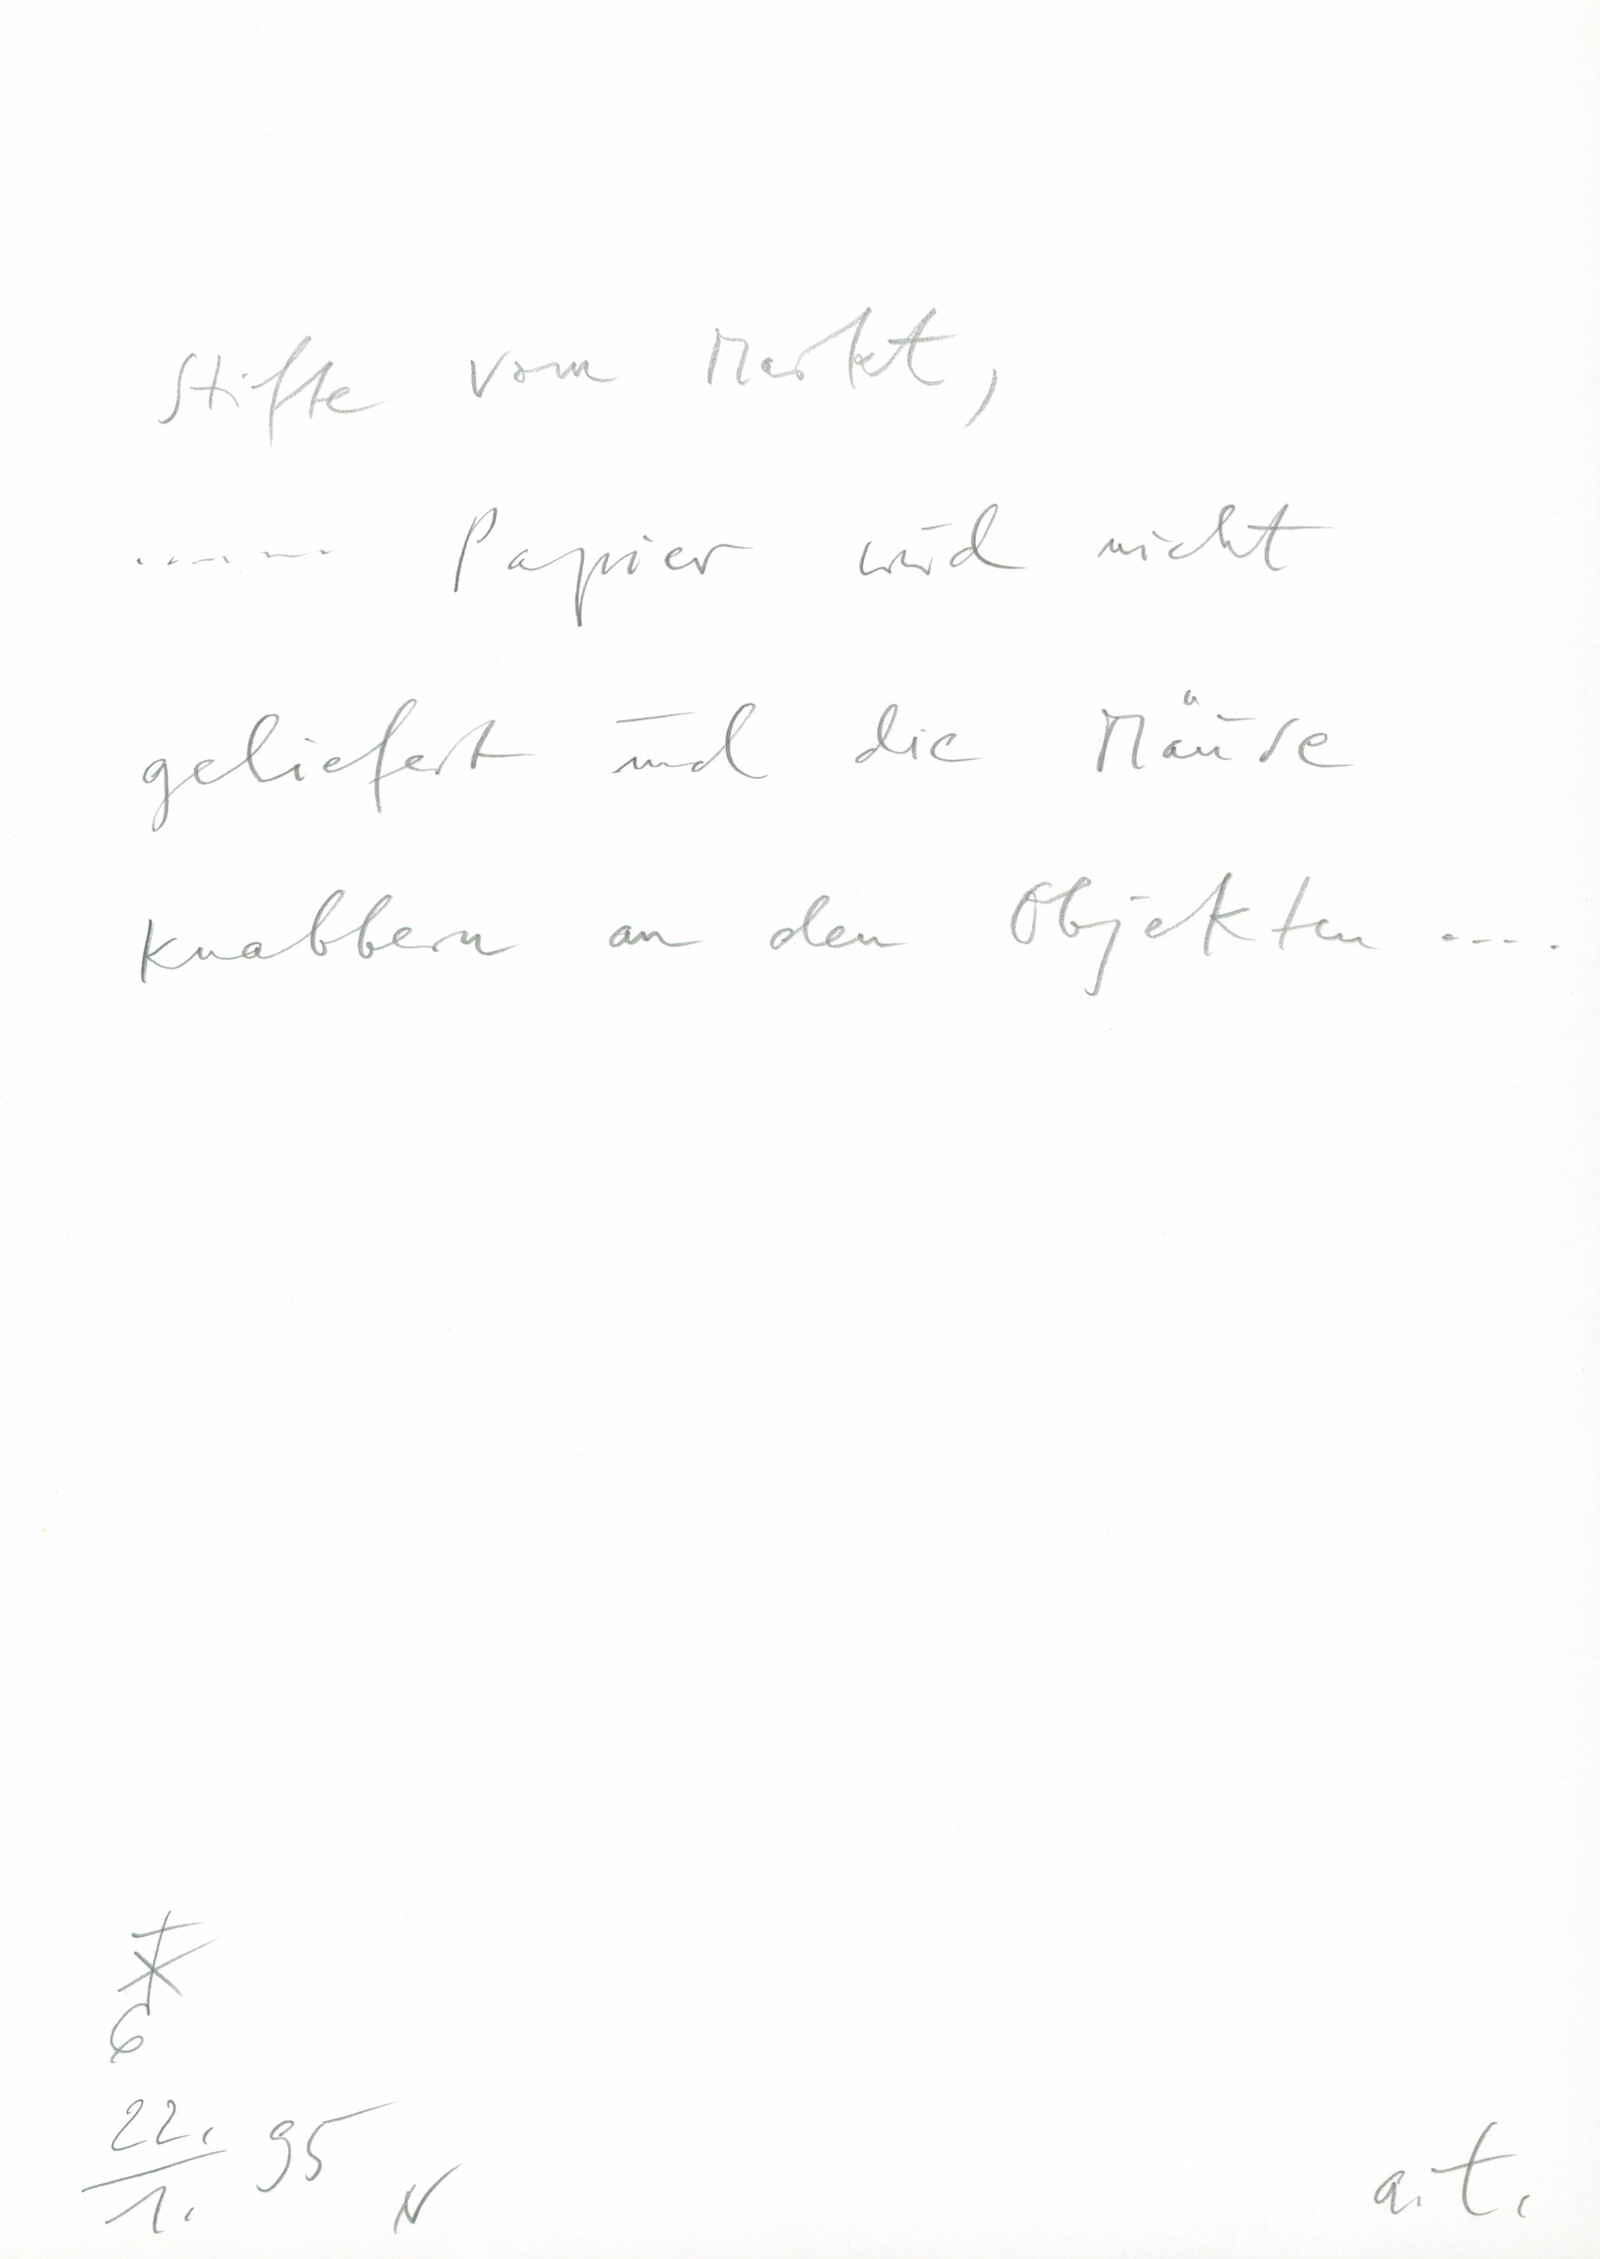 Stifte vom Markt,
....... Papier wird nicht
geliefert und die Mäuse
knabbern an den Objekten ....
6
22. 95
1. N
a.t.